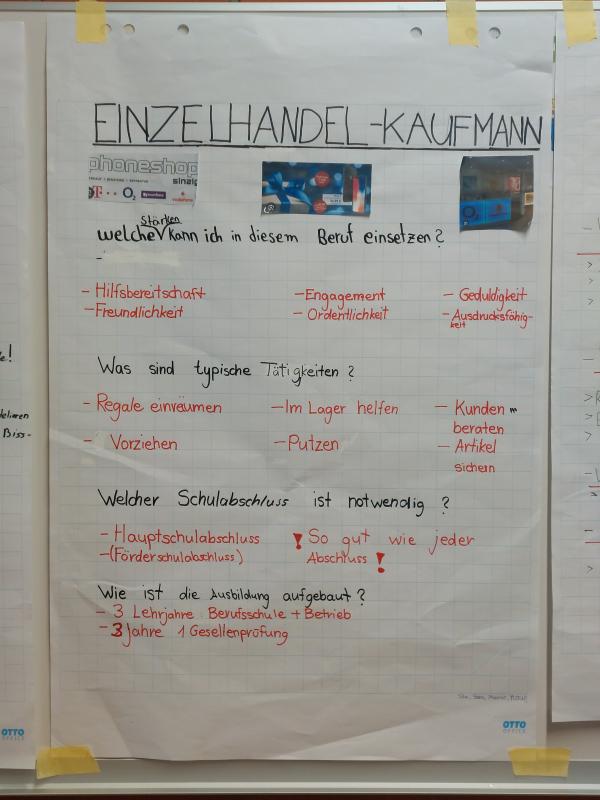 EINZELHANDEL-KAUFMANN
phoneshop
sinalp
T O2 vodafone
Stärken
welche √ kann ich in diesem Beruf einsetzen?
-
- Hilfsbereitschaft - Engagement - Geduldigkeit
- Freundlichkeit - Ordentlichkeit - Ausdrucksfähig-
keit
Was sind typische Tätigkeiten?
- Regale einräumen - Im Lager helfen - Kunden
beraten
- Vorziehen - Putzen - Artikel
sichern
Welcher Schulabschluss ist notwendig?
- Hauptschulabschluss ! So gut wie jeder
- (Förderschulabschluss) Abschluss !
Wie ist die Ausbildung aufgebaut?
- 3 Lehrjahre Berufsschule + Betrieb
- 3 Jahre 1 Gesellenprüfung
OTTO
OFFICE
OTTO
OFFICE
e!
Biss-